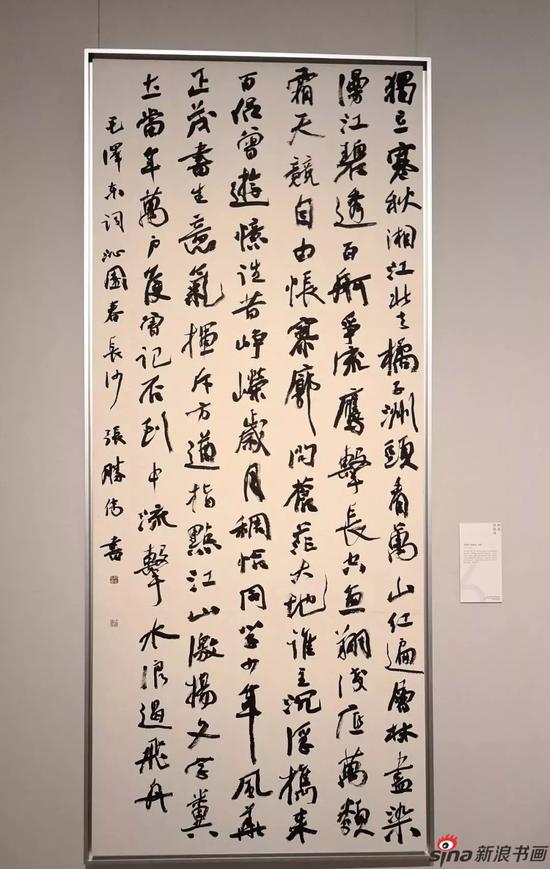 獨立寒秋湘江北去橘子洲頭看萬山紅遍層林盡染
漫江碧透百舸爭流鷹擊長空魚翔淺底萬類
霜天競自由悵寥廓問蒼茫大地誰主沉浮攜來
百侶曾遊憶往昔崢嶸歲月稠恰同學少年風華
正茂書生意氣揮斥方遒指點江山激揚文字糞
土當年萬戶侯曾記否到中流擊水浪遏飛舟
毛澤東詞沁園春長沙 張勝偉書
sina新浪书画